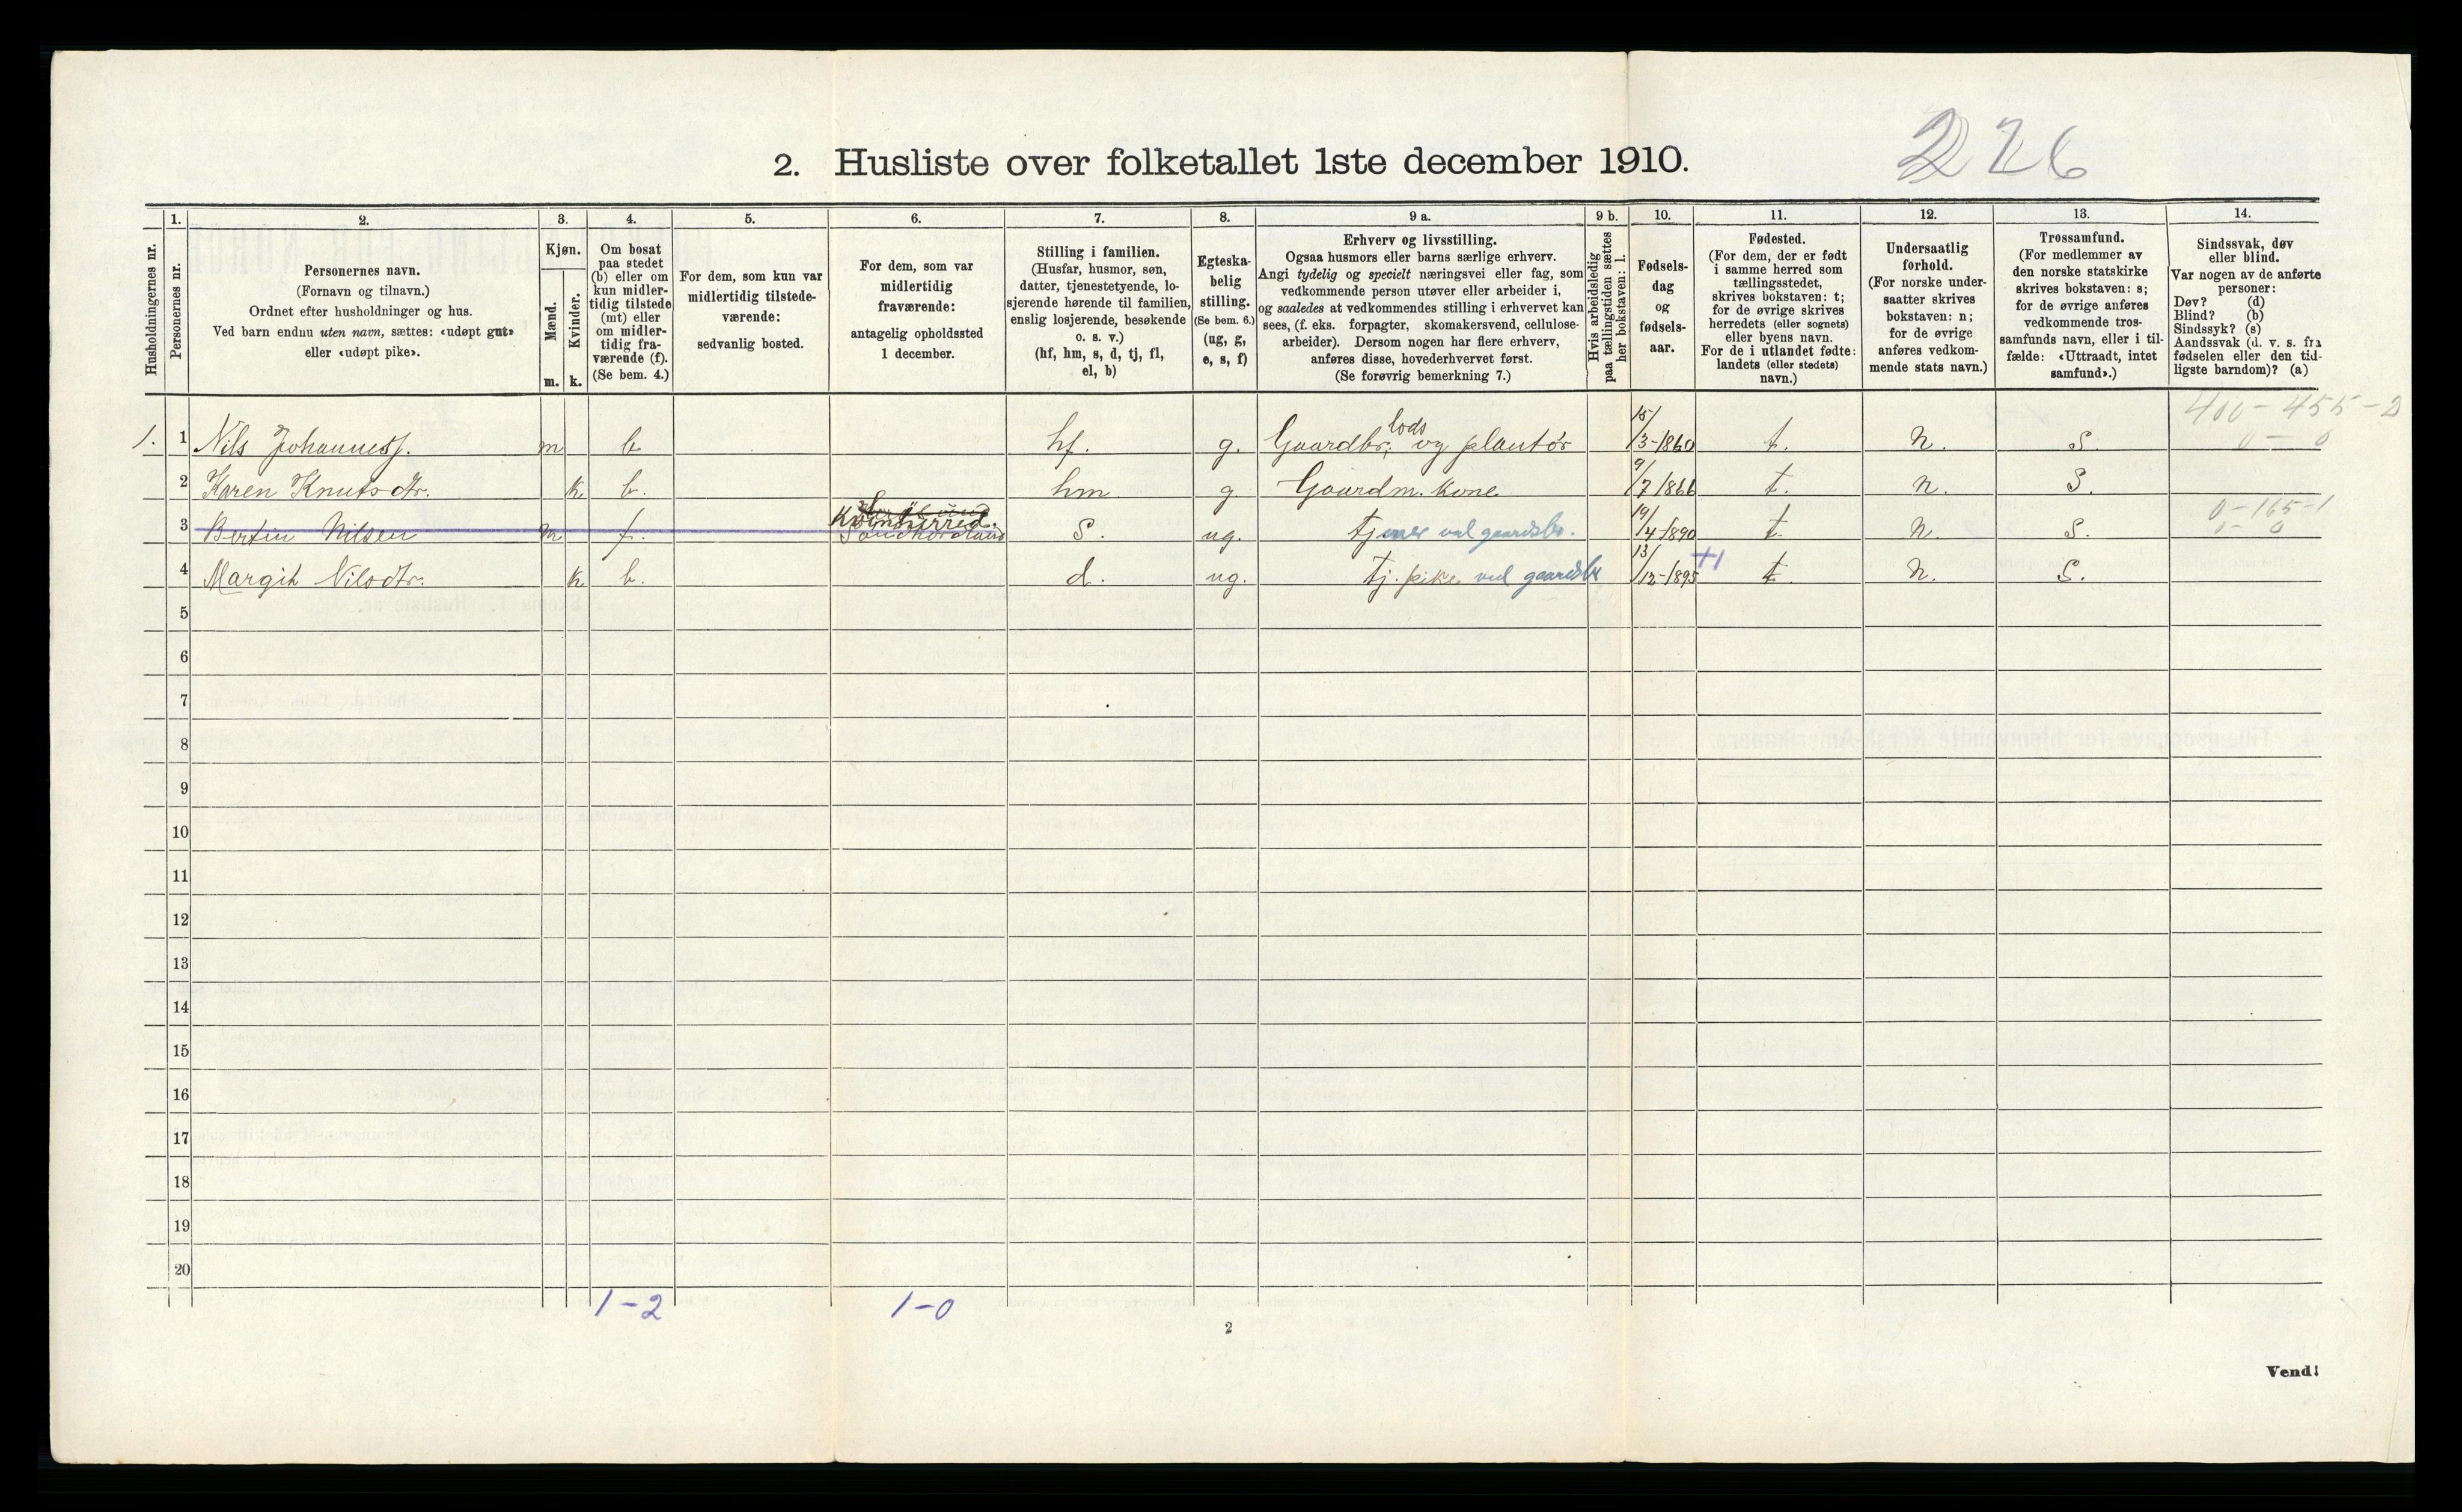 226
2. Husliste over folketallet 1ste december 1910.
Husholdningernes nr.
1.
Personernes nr.
2.
Personernes navn.
(Fornavn og tilnavn.)
Ordnet efter husholdninger og hus.
Ved barn endnu uten navn, sættes: «udøpt gut»
eller «udøpt pike».
3.
Kjøn.
Mænd.
Kvinder.
m. k.
4.
Om bosat
paa stedet
(b) eller om
kun midler-
tidig tilstede
(mt) eller
om midler-
tidig fra-
værende (f).
(Se bem. 4.)
5.
For dem, som kun var
midlertidig tilstede-
værende:
sedvanlig bosted.
6.
For dem, som var
midlertidig
fraværende:
antagelig opholdssted
1 december.
7.
Stilling i familien.
(Husfar, husmor, søn,
datter, tjenestetyende, lo-
sjerende hørende til familien,
enslig losjerende, besøkende
o. s. v.)
(hf, hm, s, d, tj, fl,
el, b)
8.
Egteska-
belig
stilling.
(Se bem. 6.)
(ug, g,
e, s, f)
9 a.
Erhverv og livsstilling.
Ogsaa husmors eller barns særlige erhverv.
Angi tydelig og specielt næringsvei eller fag, som
vedkommende person utøver eller arbeider i,
og saaledes at vedkommendes stilling i erhvervet kan
sees, (f. eks. forpagter, skomakersvend, cellulose-
arbeider). Dersom nogen har flere erhverv,
anføres disse, hovederhvervet først.
(Se forøvrig bemerkning 7.)
9 b.
Hvis arbeidsledig
paa tællingstiden sættes
her bokstaven: l.
10.
Fødsels-
dag
og
fødsels-
aar.
11.
Fødested.
(For dem, der er født
i samme herred som
tællingsstedet,
skrives bokstaven: t;
for de øvrige skrives
herredets (eller sognets)
eller byens navn.
For de i utlandet fødte:
landets (eller stedets)
navn.)
12.
Undersaatlig
forhold.
(For norske under-
saatter skrives
bokstaven: n;
for de øvrige
anføres vedkom-
mende stats navn.)
13.
Trossamfund.
(For medlemmer av
den norske statskirke
skrives bokstaven: s;
for de øvrige anføres
vedkommende tros-
samfunds navn, eller i til-
fælde: «Uttraadt, intet
samfund».)
14.
Sindssvak, døv
eller blind.
Var nogen av de anførte
personer:
Døv? (d)
Blind? (b)
Sindssyk? (s)
Aandssvak (d. v. s. fra
fødselen eller den tid-
ligste barndom)? (a)
400 - 455 - 2
0 - 0
1. 1 Nils Johanness. m b hf. g. Gaardbr, lods og plantör 15/3-1860 t. n. S.
2 Karen Knutsdtr. k b. hm g. Gaardm. kone. 9/7 1866 t. n. S.
3 Bertin Nilsen m f. Kvinnherred. Söndhordland S. ug. tjener ved gaardsbr. 19/4-1890 t. n. S. 0 - 165 - 1
0 - 0
4 Margit Nilsdtr. k b. d. ug. Tj. pike ved gaardsbr 13/12-1895 +1 t. n. S.
5
6
7
8
9
10
11
12
13
14
15
16
17
18
19
20
1 - 2 1 - 0
2
Vend!